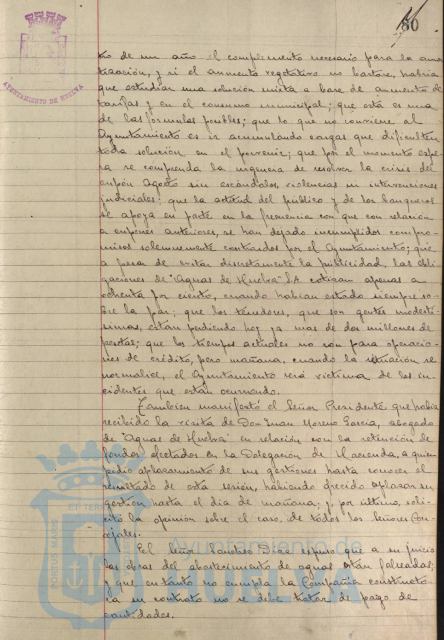 80
AYUNTAMIENTO DE HUELVA
to de un año el complemento necesario para la amor
tización, y si el aumento vegetativo no bastare, habría
que estudiar una solución mixta a base de aumento de
tarifas y en el consumo municipal; que esta es una
de las fórmulas posibles; que lo que no conviene al
Ayuntamiento es ir acumulando cargas que dificulten
toda solución en el porvenir; que por el momento espe
ra se comprenda la urgencia de resolver la crisis del
cupón Agosto sin escándalos, violencias ni intervenciones
judiciales; que la actitud del público y de los banqueros
se apoya en parte en la frecuencia con que con relación
a cupones anteriores, se han dejado incumplidos compro
misos solemnemente contraidos por el Ayuntamiento; que
a pesar de evitar discretamente la publicidad, las obli
gaciones de "Aguas de Huelva" S.A. cotizan apenas a
ochenta por ciento, cuando habían estado siempre so
bre la par; que los tenedores, que son gentes modestí
simas, están perdiendo hoy ya mas de dos millones de
pesetas; que los tiempos actuales no son para operacio
nes de crédito, pero mañana, cuando la situación se
normalice, el Ayuntamiento será víctima de los in
cidentes que están ocurriendo.
También manifestó el Señor Presidente que había
recibido la visita de Don Juan Moreno García, abogado
de "Aguas de Huelva" en relación con la retención de
fondos efectuados en la Delegación de Hacienda, a quien
pidió aplazamiento de sus gestiones hasta conocer el
resultado de esta sesión, habiendo ofrecido aplazar su
gestión hasta el día de mañana; y, por último, soli
citó la opinión sobre el caso, de todos los Señores Con
cejales.
El Señor Sánchez Díaz expuso que a su juicio
las obras del abastecimiento de aguas están falseadas;
y que en tanto no cumpla la Compañía constructo
ra su contrato no se debe tratar de pago de
cantidades.
Ayuntamiento de
PORTUS MARIS
ET TERRAE